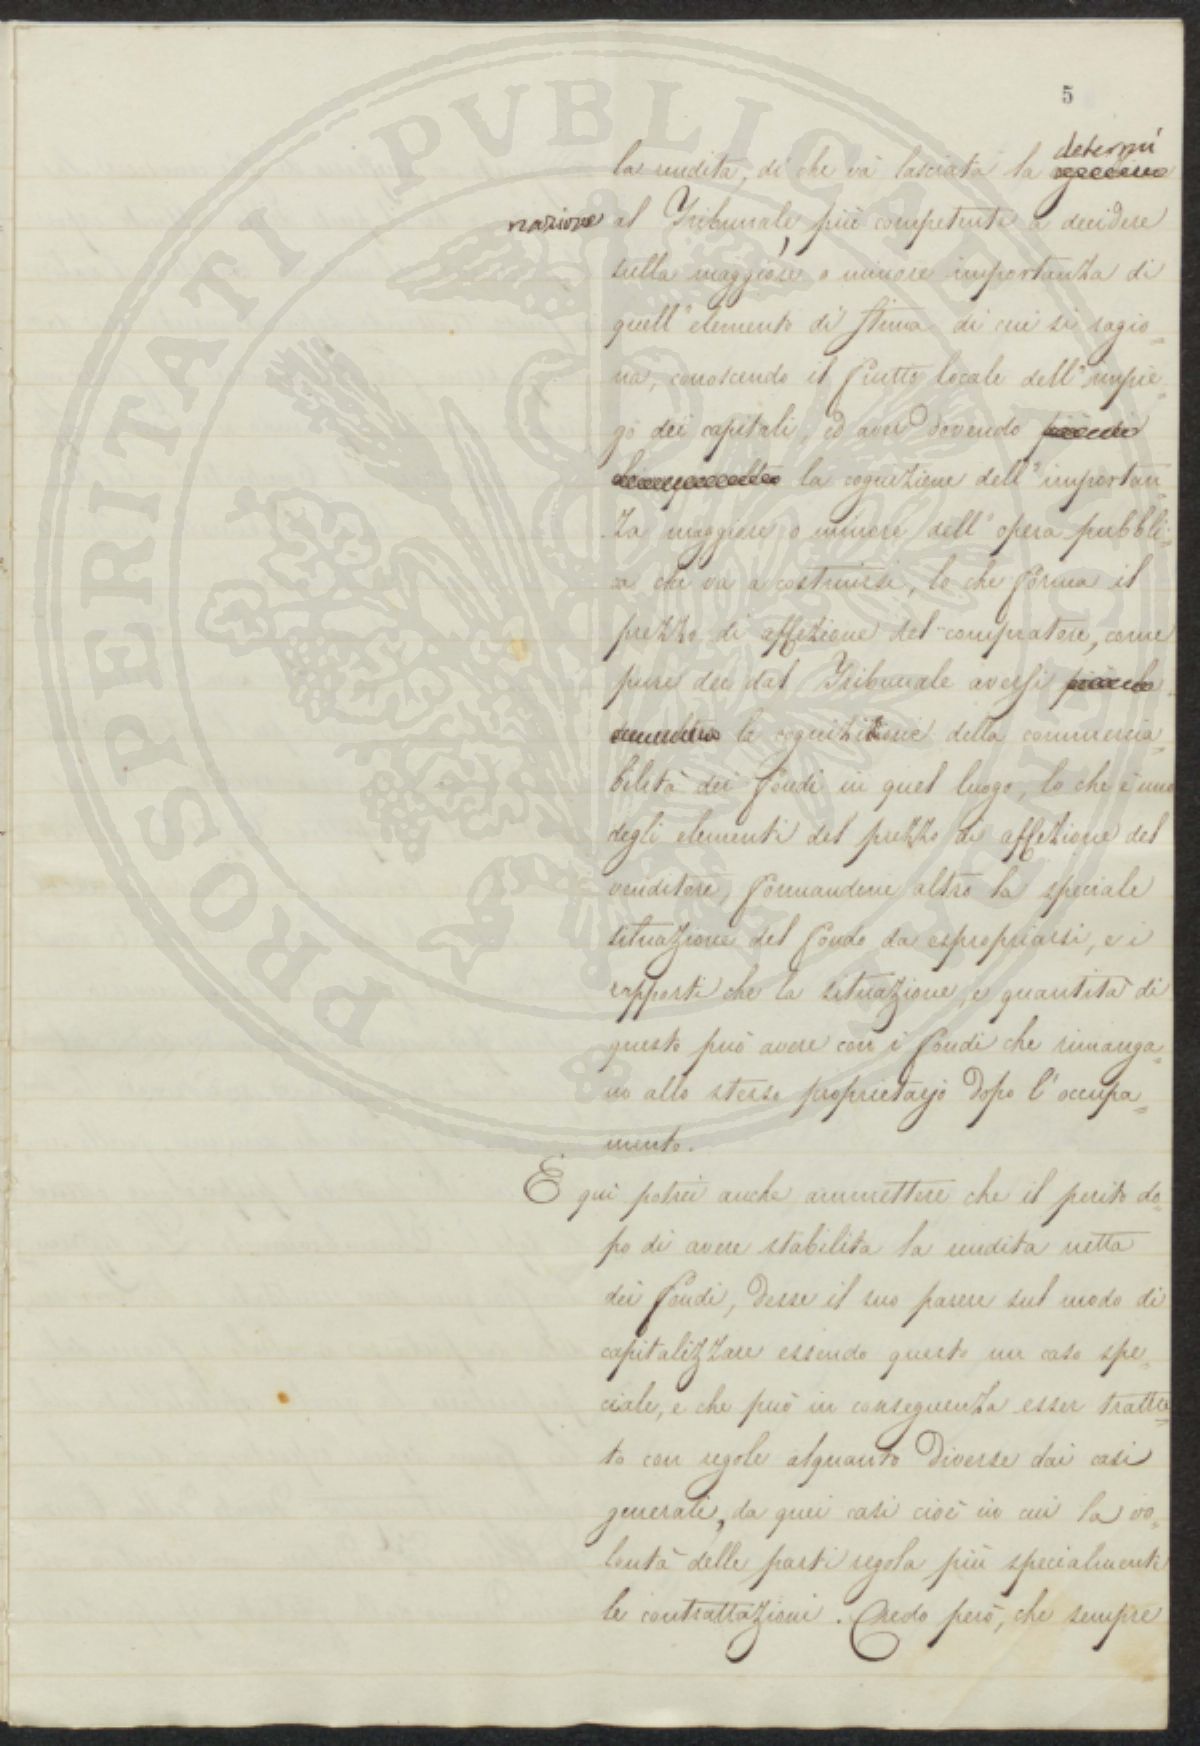 5
la rendita, di che va lasciata la determi
nazione al Tribunale, più competente a decidere
sulla maggiore o minore importanza di
quell'elemento di stima di cui si ragio-
na, conoscendo il frutto locale dell'impie
go dei capitali, ed aver dovendo
la cognizione dell'importan-
za maggiore o minore dell'opera pubbli-
ca che va a costruirsi, lo che forma il
prezzo di affezione del compratore, come
pure dee dal Tribunale aversi
la cognizione della commercia-
bilità dei fondi in quel luogo, lo che è uno
degli elementi del prezzo di affezione del
venditore, formandone altro la speciale
situazione del fondo da espropriarsi, e i
rapporti che la situazione, e quantità di
questo può avere con i fondi che rimanga-
no allo stesso proprietario dopo l'occupa-
mento.
E qui potrei anche ammettere che il perito do-
po di avere stabilita la rendita netta
dei fondi, desse il suo parere sul modo di
capitalizzare essendo questo un caso spe-
ciale, e che può in conseguenza esser tratta-
to con regole alquanto diverse dai casi
generali, da quei casi cioè in cui la vo-
lontà delle parti regola più specialmente
le contrattazioni. Credo però, che sempre
PROSPERITATI PVBLICAE